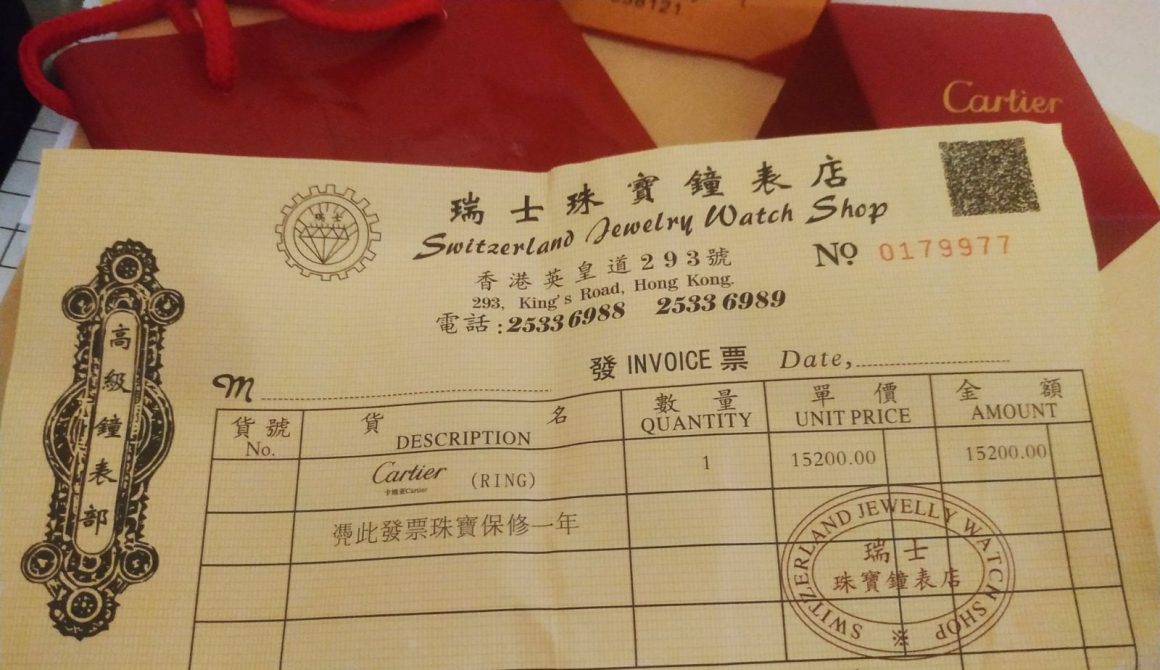 58121
Cartier
瑞士珠寶鐘表店
Switzerland Jewelry Watch Shop
香港英皇道293號
293, King's Road, Hong Kong.
電話:2533 6988 2533 6989
No 0179977
瑞士
高級鐘表部
發 INVOICE 票 Date,
M
貨號 貨名 數量 單價 金額
No. DESCRIPTION QUANTITY UNIT PRICE AMOUNT
Cartier (RING) 1 15200.00 15200.00
卡地亚Cartier
凴此發票珠寶保修一年
SWITZERLAND JEWELLY WATCN SHOP
瑞士
珠寶鐘表店
※